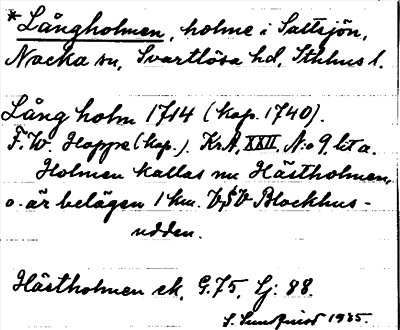 *Långholmen, holme i Saltsjön,
Nacka sn, Svartlösa hd, Sthlms l.
Lång holm 1714 (kop. 1740).
F.W. Hoppe (kop.). KrA, XXII, N:o 9, lit a.
Holmen kallas nu Hästholmen,
o. är belägen 1 km. V,SV Blockhus-
udden.
Hästholmen ek. G.75, Lj: 88.
S. Lundqvist 1935.